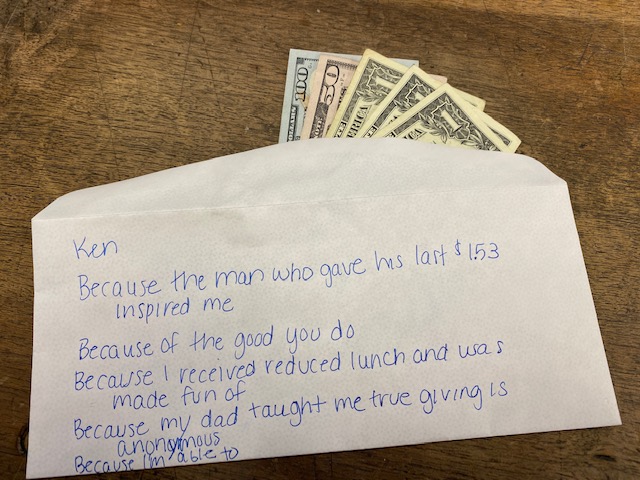 100
DOLLARS
50
1
ERICA
1
ERICA
1
AMERICA
Ken
Because the man who gave his last $1.53
inspired me
Because of the good you do
Because I received reduced lunch and was
made fun of
Because my dad taught me true giving is
anonymous
Because I'm able to